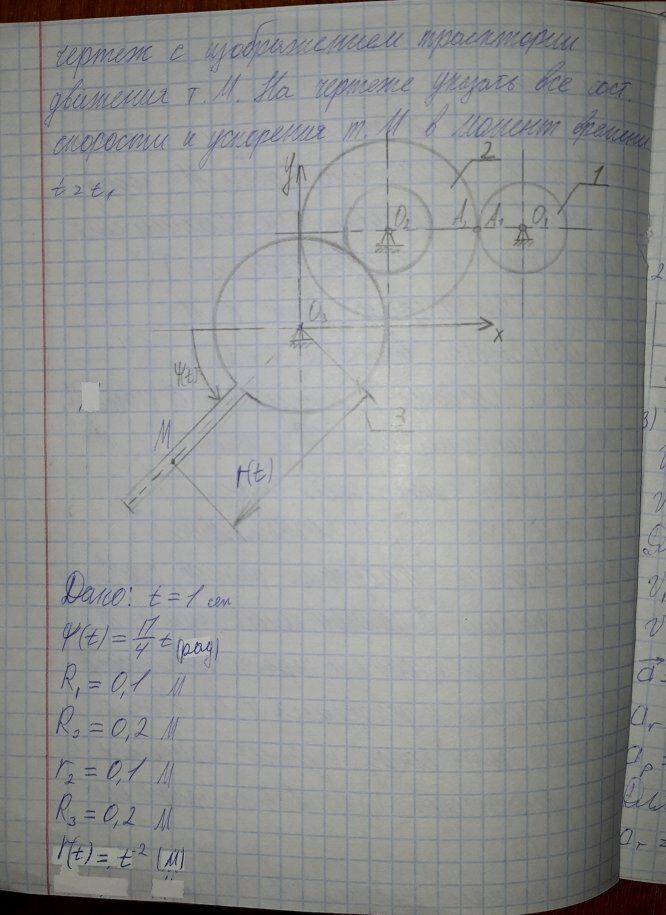 чертеж с изображением траектории
движения т. М. На чертеже указать все сост.
скорости и ускорения т. М в момент времени
t = t₁
y
2
1
O₂
A₂
A₁
O₁
O₃
x
Ψ(t)
3
М
r(t)
Дано: t = 1 сек
Ψ(t) = π/4 t (рад)
R₁ = 0,1 М
R₂ = 0,2 М
r₂ = 0,1 М
R₃ = 0,2 М
r(t) = t⁻² (М)